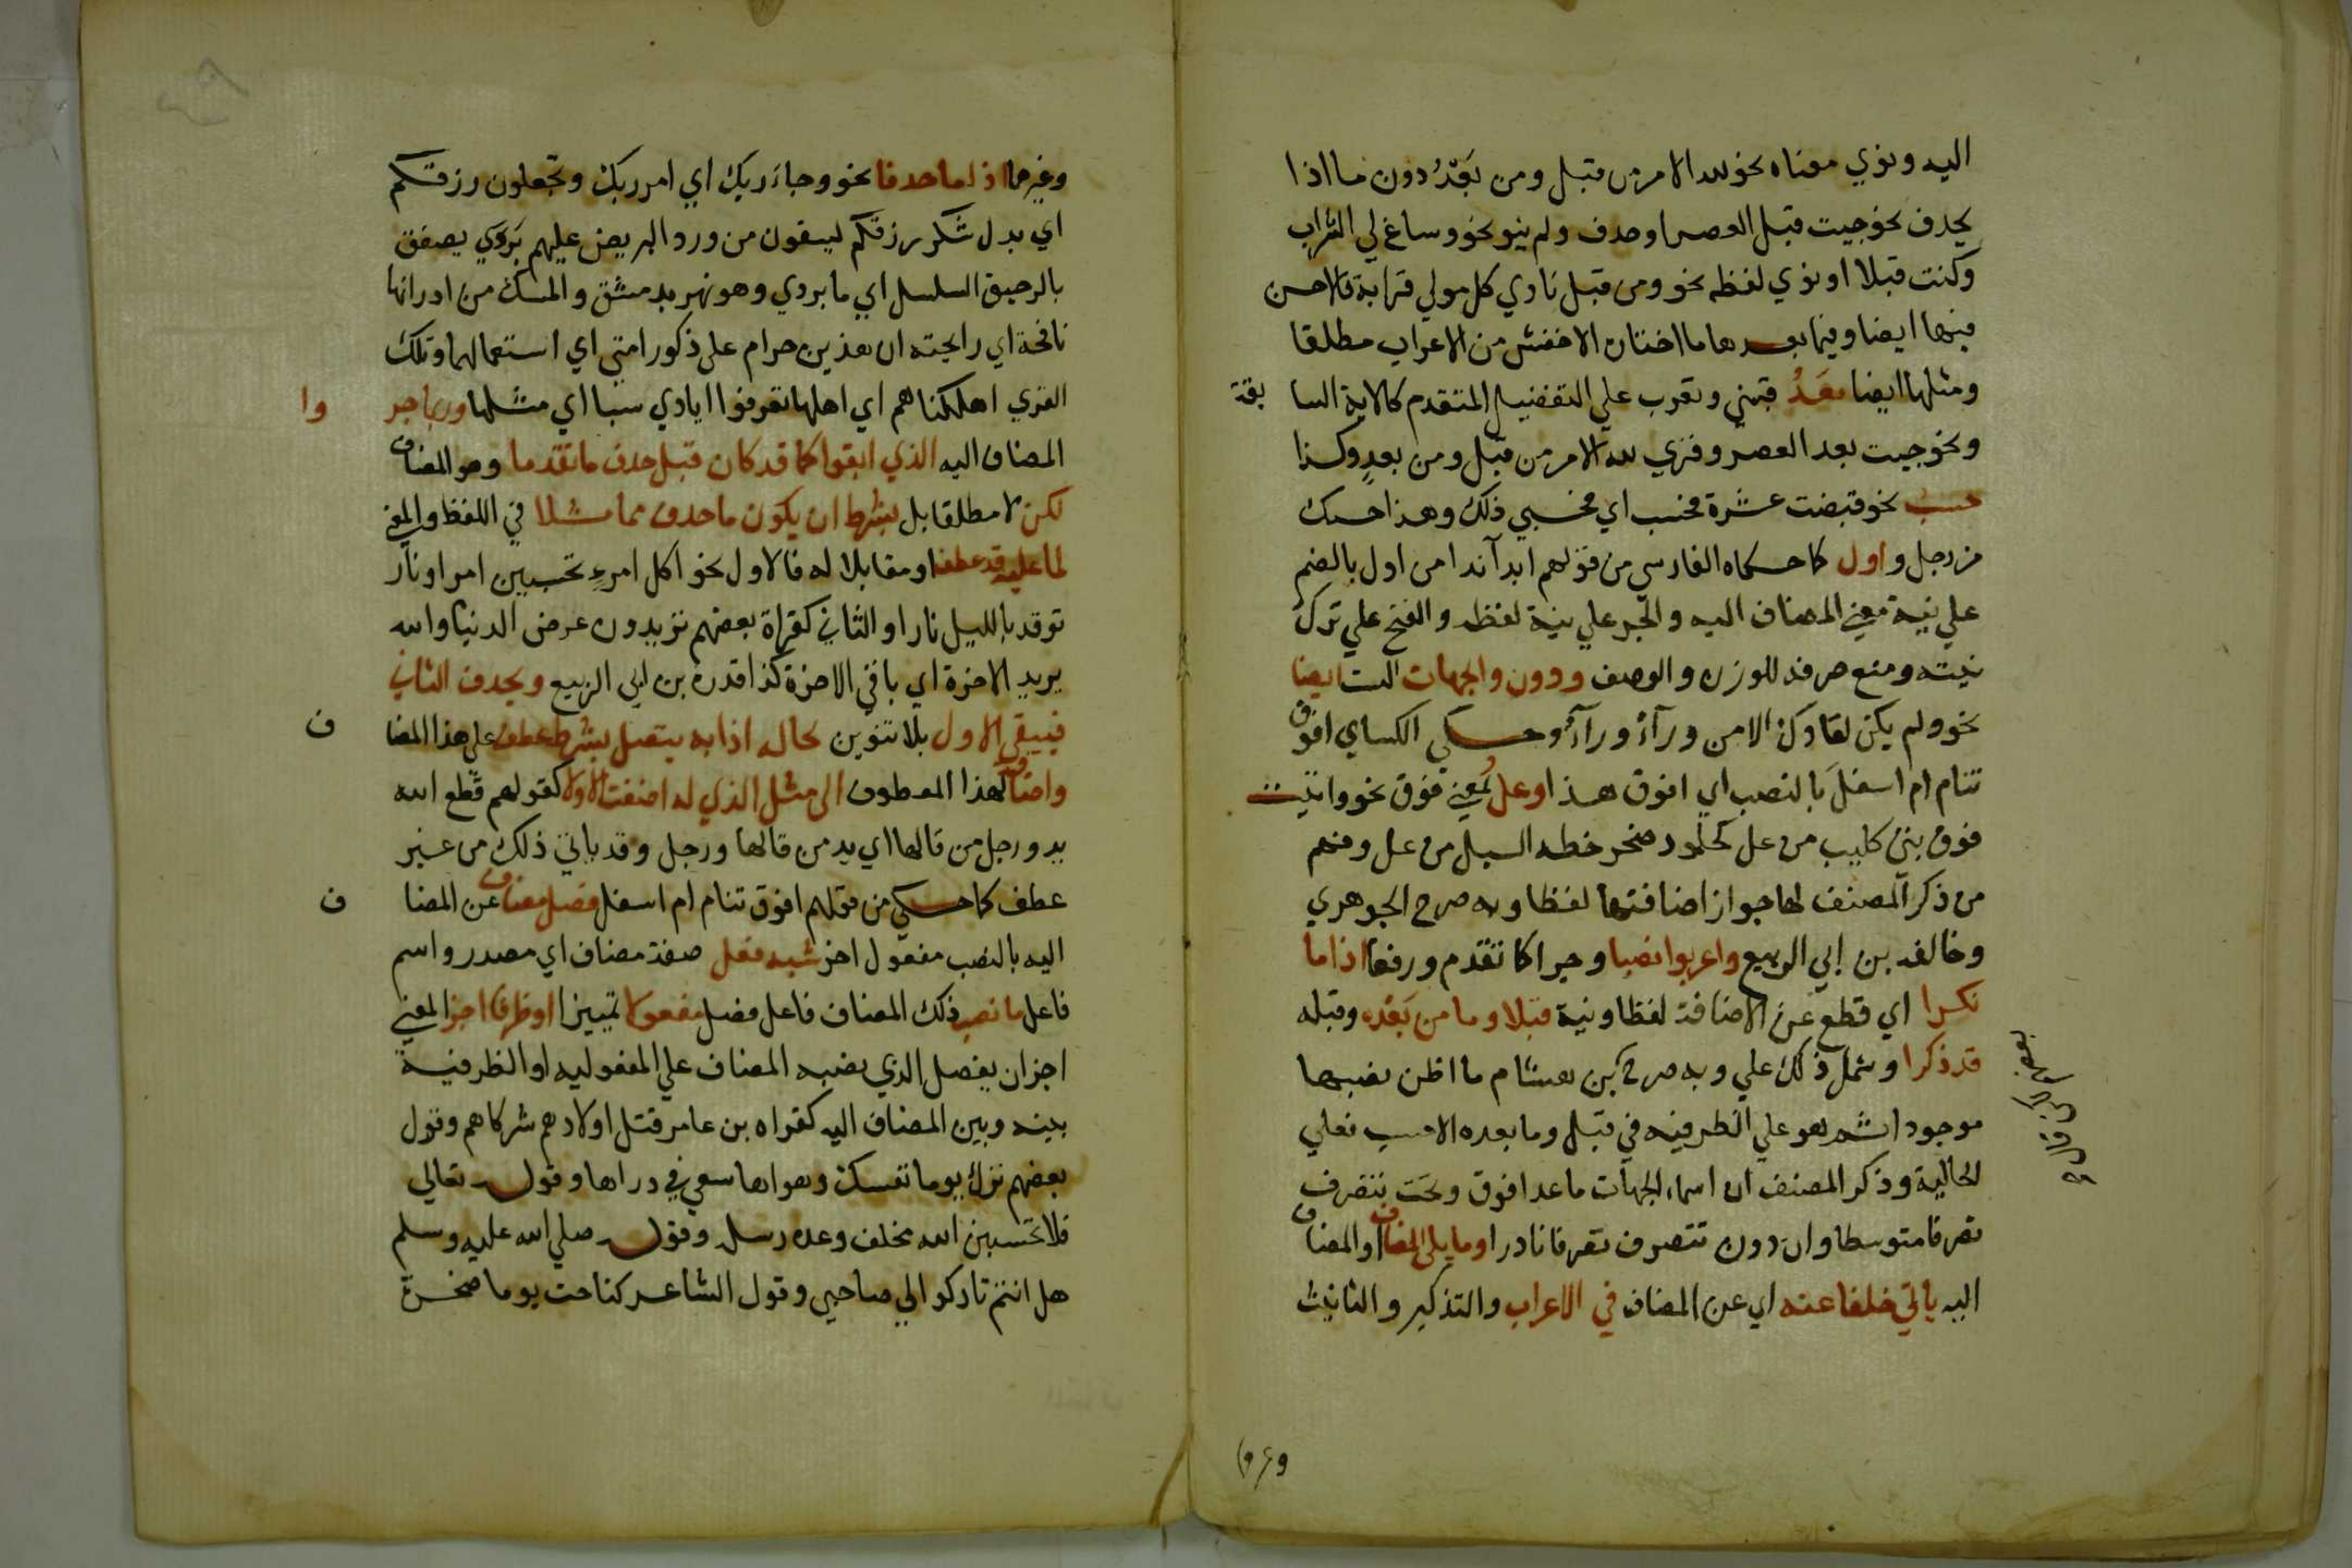 اليه ونوي معناه نحو لله الامر من قبل ومن بَعْدُ دون ما اذا
يحذف نحو جيت قبل العصر او حذف ولم ينو نحو وساغ لي الشراب
وكنت قبلا او نوي لفظه نحو ومن قبل نادي كل مولي قرابة فالاحسن
فيها ايضا وفيما بعدها ما اختاره الاخفش من الاعراب مطلقا
ومثلها ايضا بعَدُ فتبني وتعرب علي التفصيل المتقدم كالاية السا بقة
ونحو جيت بعد العصر وقري لله الامر من قبل ومن بعدٍ وكذا
حسب نحو قبضت عشرة فحسب اي فحسبي ذلك وهذا حسبك
من رجل واول كما حكاه الفارسي من قولهم ابدا بذا من اول بالضم
علي نية معني المضاف اليه والجر علي نية لفظه والفتح علي ترك
نيته ومنع صرفه للوزن والوصف ودون والجهات الست ايضا
نحو ولم يكن لقاوك الا من ورآءُ ورآءُ وحكي الكساي افوق
تنام ام اسفلَ بالنصب اي افوق هذا وعل بمعني فوق نحو واتيت
فوق بني كليب من عل كجلمود صخر حطه السيل من عل وفهم
من ذكر المصنف لها جواز اضافتها لفظا وبه صرح الجوهري
وخالفه بن ابي الربيع واعربوا نصبا وجرا كما تقدم ورفعا اذا ما
نكرا اي قطع عن الاضافة لفظا ونية قبلا وما من بَعْده وقبله
قد ذكرا وشمل ذلك علي وبه صرح بن هشام ما اظن نصبها
موجودا ثم هو علي الظرفيه في قبل وما بعده الا حسب فعلي
الحالية وذكر المصنف ان اسماء الجهات ما عدا فوق وتحت تتصرف
تصرفا متوسطا وان دون تتصرف تصرفا نادرا وما يلي المضاف او المضاف
اليه ياتي خلفا عنه اي عن المضاف في الاعراب والتذكير والتانيث
وغيرها
وغيرها اذا ما حذفا نحو وجاء ربك اي امر ربك وتجعلون رزقكم
اي بدل شكر رزقكم ليسقون من ورد البريص عليهم بَرَدَي يصفق
بالرحيق السلسل اي ما بردي وهو نهر بدمشق والمسك من اردانها
نافحة اي رايحته ان هذين حرام علي ذكور امتي اي استعمالهما وتلك
القري اهلكناهم اي اهلها تفرقوا ايادي سبا اي مثلها وربما جر وا
المضاف اليه الذي ابقوا كما قد كان قبل حذف ما تقدما وهو المضاف
لكن لا مطلقا بل بشرط ان يكون ما حذف مماثلا في اللفظ والمعني
لما عليه قد عطف او مقابلا له فالاول نحو اكل امرءٍ تحسبين امرا ونار
توقد بالليل نارا والثاني كقراة بعضهم تريدون عرض الدنيا والله
يريد الاخرة اي باقي الاخرة كذا قدره بن ابي الربيع ويحذف الثاني
فيبقي الاول بلا تنوين كحاله اذا به يتصل بشرط عطف علي هذا المضا ف
واضافة لهذا المعطوف الي مثل الذي له اضفت الاولا كقولهم قطع الله
يد ورجل من قالها اي يد من قالها ورجل وقد ياتي ذلك من غير
عطف كما حكي من قولهم افوق تنام ام اسفل فصل مضاف عن المضا ف
اليه بالنصب مفعول اجز شبه فعل صفة مضاف اي مصدر واسم
فاعل ما نصب ذلك المضاف فاعل فصل مفعولا تمييز او ظرفا اجز المعني
اجز ان يفصل الذي نصبه المضاف علي المفعوليه او الظرفية
بينه وبين المضاف اليه كقراه بن عامر قتل اولادهم شركاهم وقول
بعضهم ترك يوما نفسك وهواها سعي في رداها وقوله تعالي
فلا تحسبن الله مخلف وعده رسله وقوله صلي الله عليه وسلم
هل انتم تاركوا لي صاحبي وقول الشاعر كناحت يوما صخرة